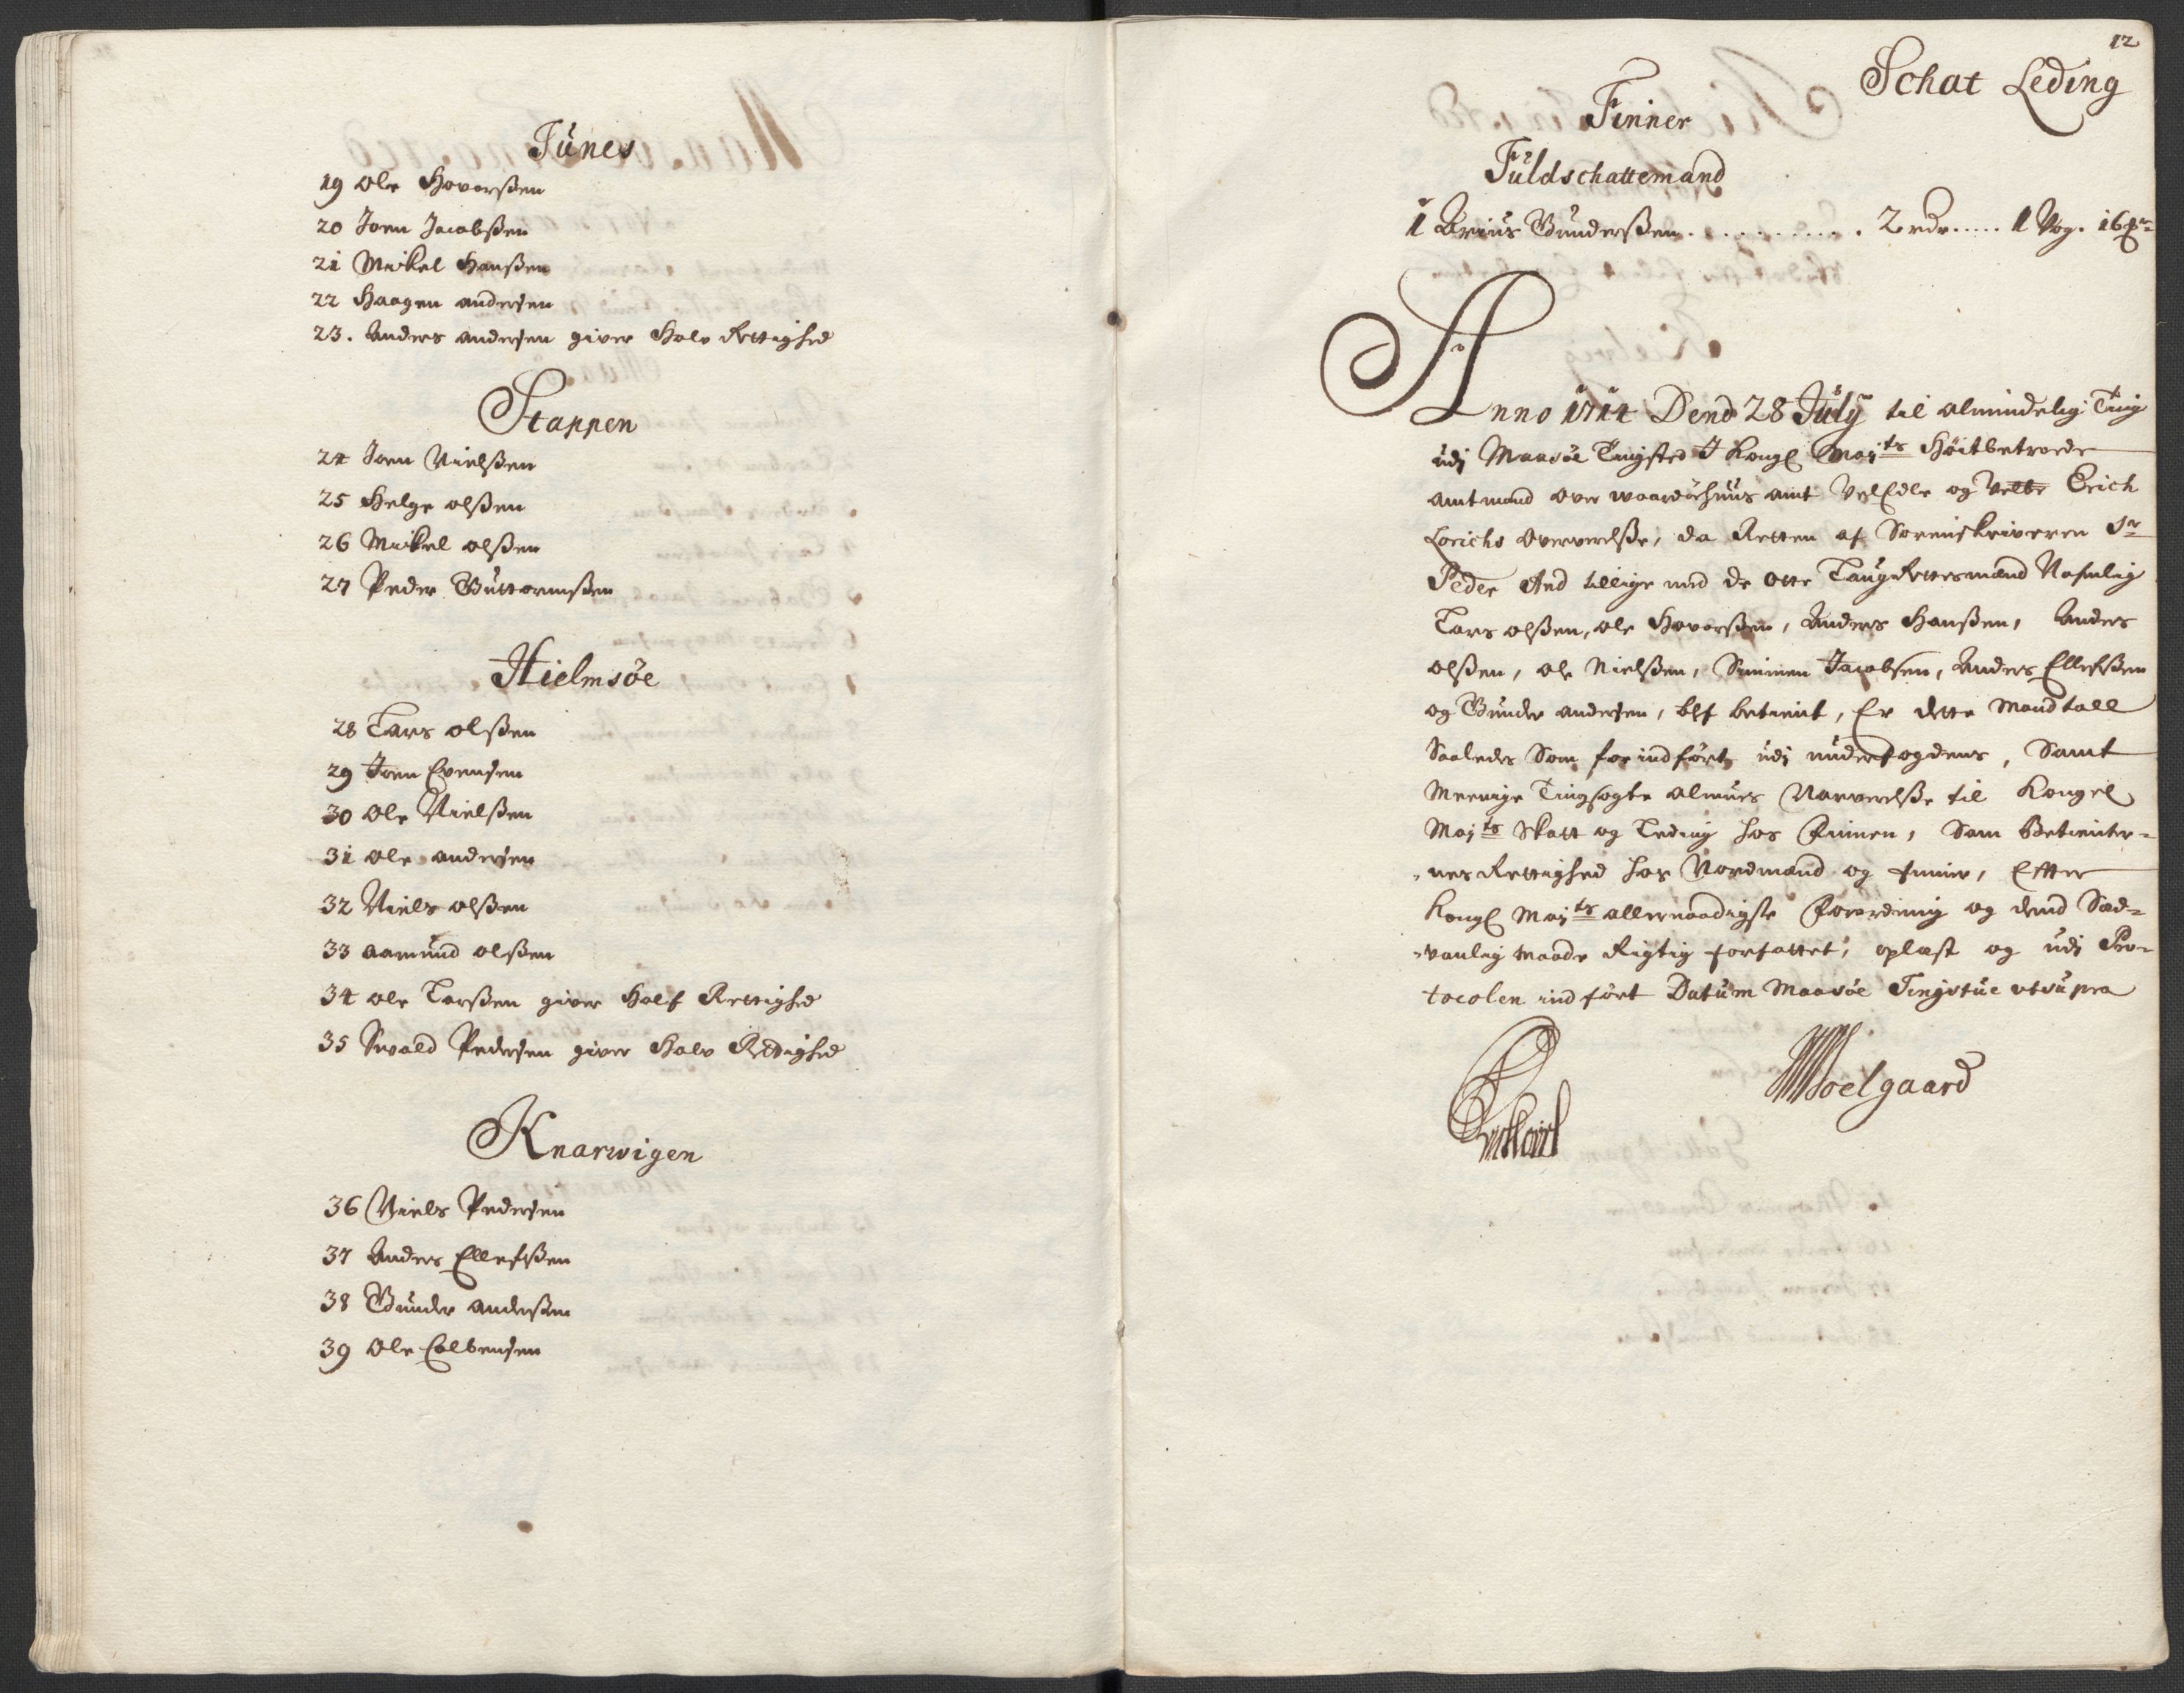 Tunes
19 Ole Hovorßen
20 Joen Jacobßen
21 Mickel Hanßen
22 Haagen andersen
23. Anders andersen giver Halv Rettighed
Stappen
24 Joen Nielßen
25 Helge olßen
26 Mickel olßen
27 Peder Guttormßen
Hielmsöe
28 Lars olßen
29 Joen Evensen
30 Ole Nielßen
31 Ole andersen
32 Niels olßen
33 aamund olßen
34 ole Larßen giver Half Rettighed
35 Sivald Pedersen giver Halv Rettighed
Knarwigen
36 Niels Pedersen
37 Anders Ellefsßen
38 Gunder anderßen
39 Ole Colbensen
12
Schat Leding
Finner
Fuldschattemand
1 Grius Gunderßen . . . . . . . . . . . 2 rdr ..... 1 Vog. 16
Anno 1714 Dend 28 July til almindelig Ting
udj Maasöe Tingsted J Kongl Mayts Höitbetroede
Amtmand over waardöehuus amt VelEdle og Velbr Erich
Lorichs oververelße, da Retten af Sorenskriveren Sr
Peder And tillige med de otte Laugrettesmænd Nafnlig
Lars olßen, ole Hovorßen, Anders Hanßen, Anders
olßen, ole Nielßen, Simmen Jacobsen, Anders Ellefsßen
og Gunder andersen, blef betient, Er dette Mandtall
Saaledes Som for indført udj underfogdens, Samt
Meenige Tingsøgte almues Nærverelße til Kongel
Mayts Skatt og Leding hos Finnen, Som Betienter-
-nes Rettighed hos Nordmænd og finner, Efter
Kongl Mayts allernaadigste Forordning og dend Sæd-
-vanlig maade Rigtig forfattet, oplæst og udj Pro-
tocolen indført Datum Maasöe Tingstue ut supra
Erichlorich
Moelgaard